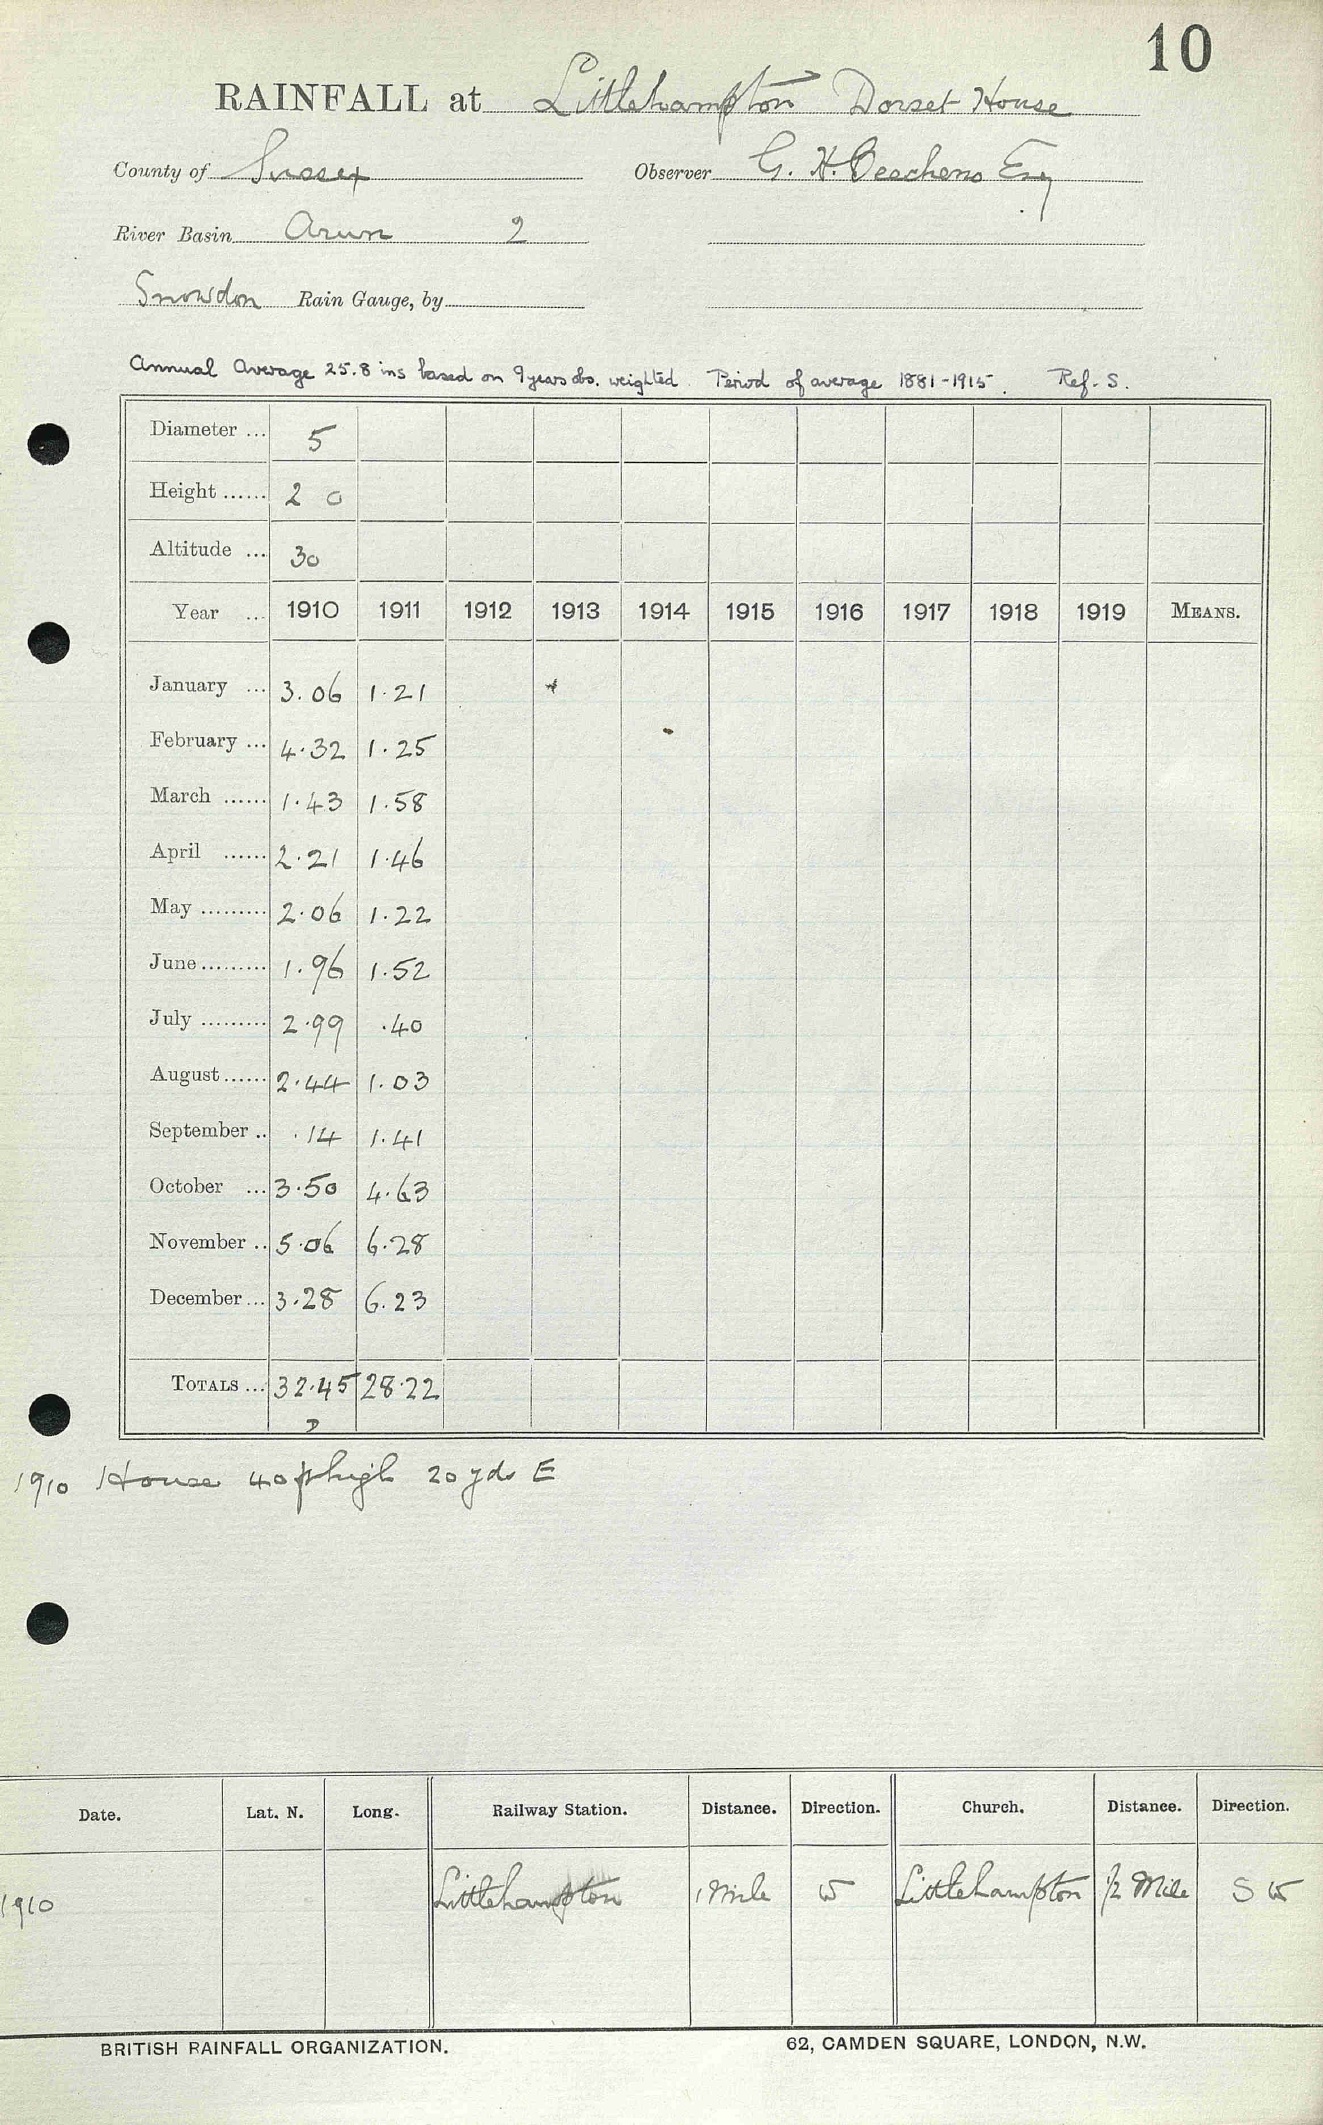 10
RAINFALL at Littlehampton Dorset House
County of Sussex Observer G. H. Esq
River Basin Arun 2
Snowdon Rain Gauge, by
Annual Average 25.8 ins based on 9 years obs. weighted. Period of average 1881-1915. Ref. S.
Diameter ... 5
Height ...... 2 0
Altitude ... 30
Year ... 1910 1911 1912 1913 1914 1915 1916 1917 1918 1919 MEANS.
January ... 3.06 1.21
February ... 4.32 1.25
March ...... 1.43 1.58
April ...... 2.21 1.46
May ......... 2.06 1.22
June ......... 1.96 1.52
July ......... 2.99 .40
August ...... 2.44 1.03
September .. .14 1.41
October ... 3.50 4.63
November .. 5.06 6.28
December ... 3.28 6.23
TOTALS ... 32.45 28.22
1910 House 40ft high 20 yds E
Date. Lat. N. Long. Railway Station. Distance. Direction. Church. Distance. Direction.
1910 Littlehampton 1 Mile W Littlehampton 1/2 Mile S W
BRITISH RAINFALL ORGANIZATION. 62, CAMDEN SQUARE, LONDON, N.W.